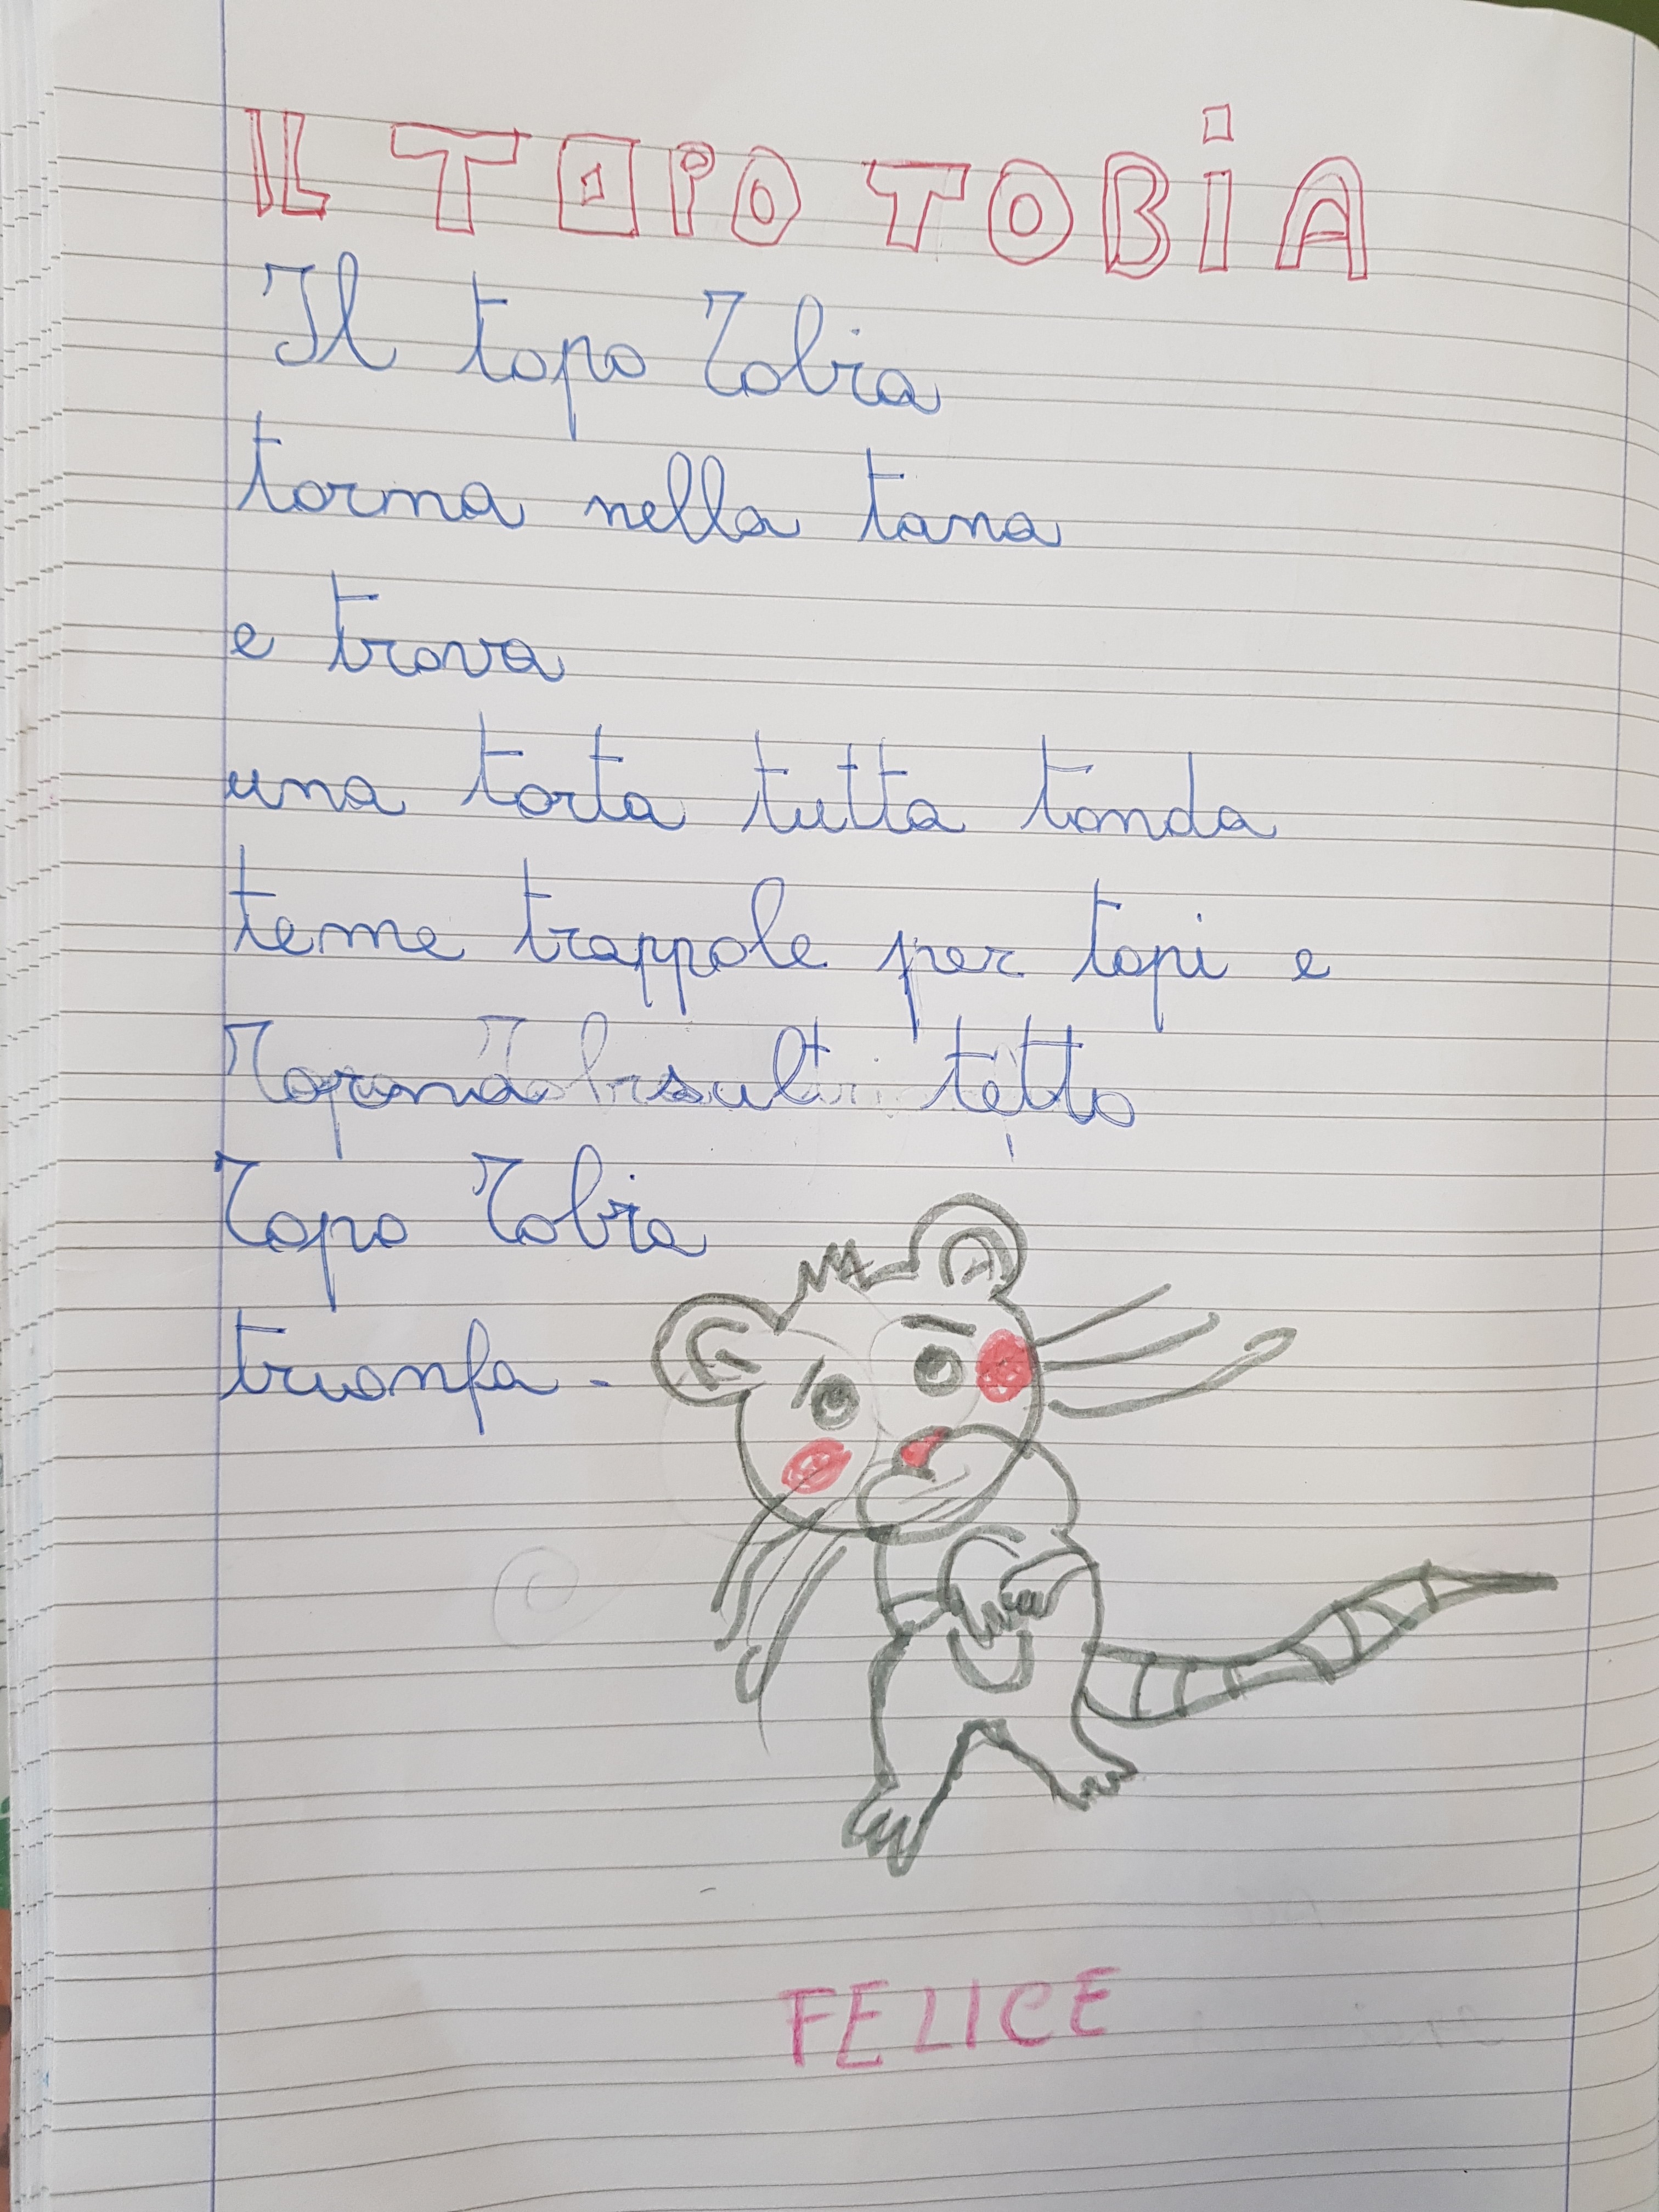 IL TOPO TOBIA
Il topo Tobia
torna nella tana
e trova
una torta tutta tonda
teme trappole per topi e
sul tetto
Topo Tobia
trionfa.
FELICE